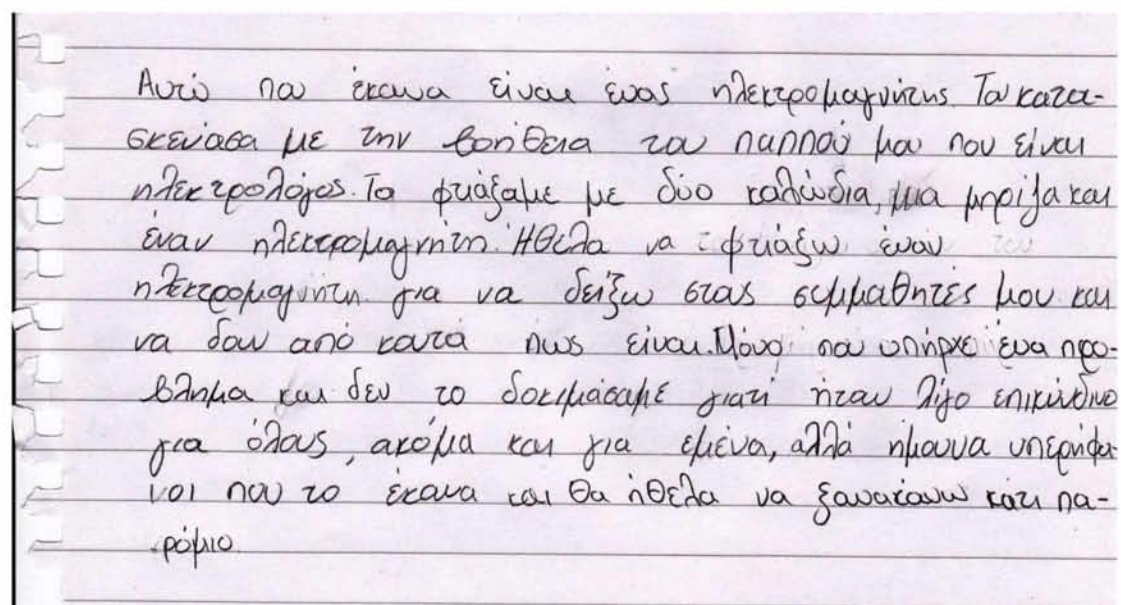 Αυτό που έκανα είναι ένας ηλεκτρομαγνήτης. Τον κατα-
σκεύασα με την βοήθεια του παππού μου που είναι
ηλεκτρολόγος. Το φτιάξαμε με δύο καλώδια, μια μπρίζα και
έναν ηλεκτρομαγνήτη. Ήθελα να φτιάξω έναν
ηλεκτρομαγνήτη για να δείξω στους συμμαθητές μου και
να δουν από κοντά πως είναι. Μόνο που υπήρχε ένα προ-
βλημα και δεν το δοκιμάσαμε γιατί ήταν λίγο επικίνδυνο
για όλους, ακόμα και για εμένα, αλλά ήμουνα υπερήφα-
νοι που το έκανα και θα ήθελα να ξανακάνω κάτι πα-
ρόμιο